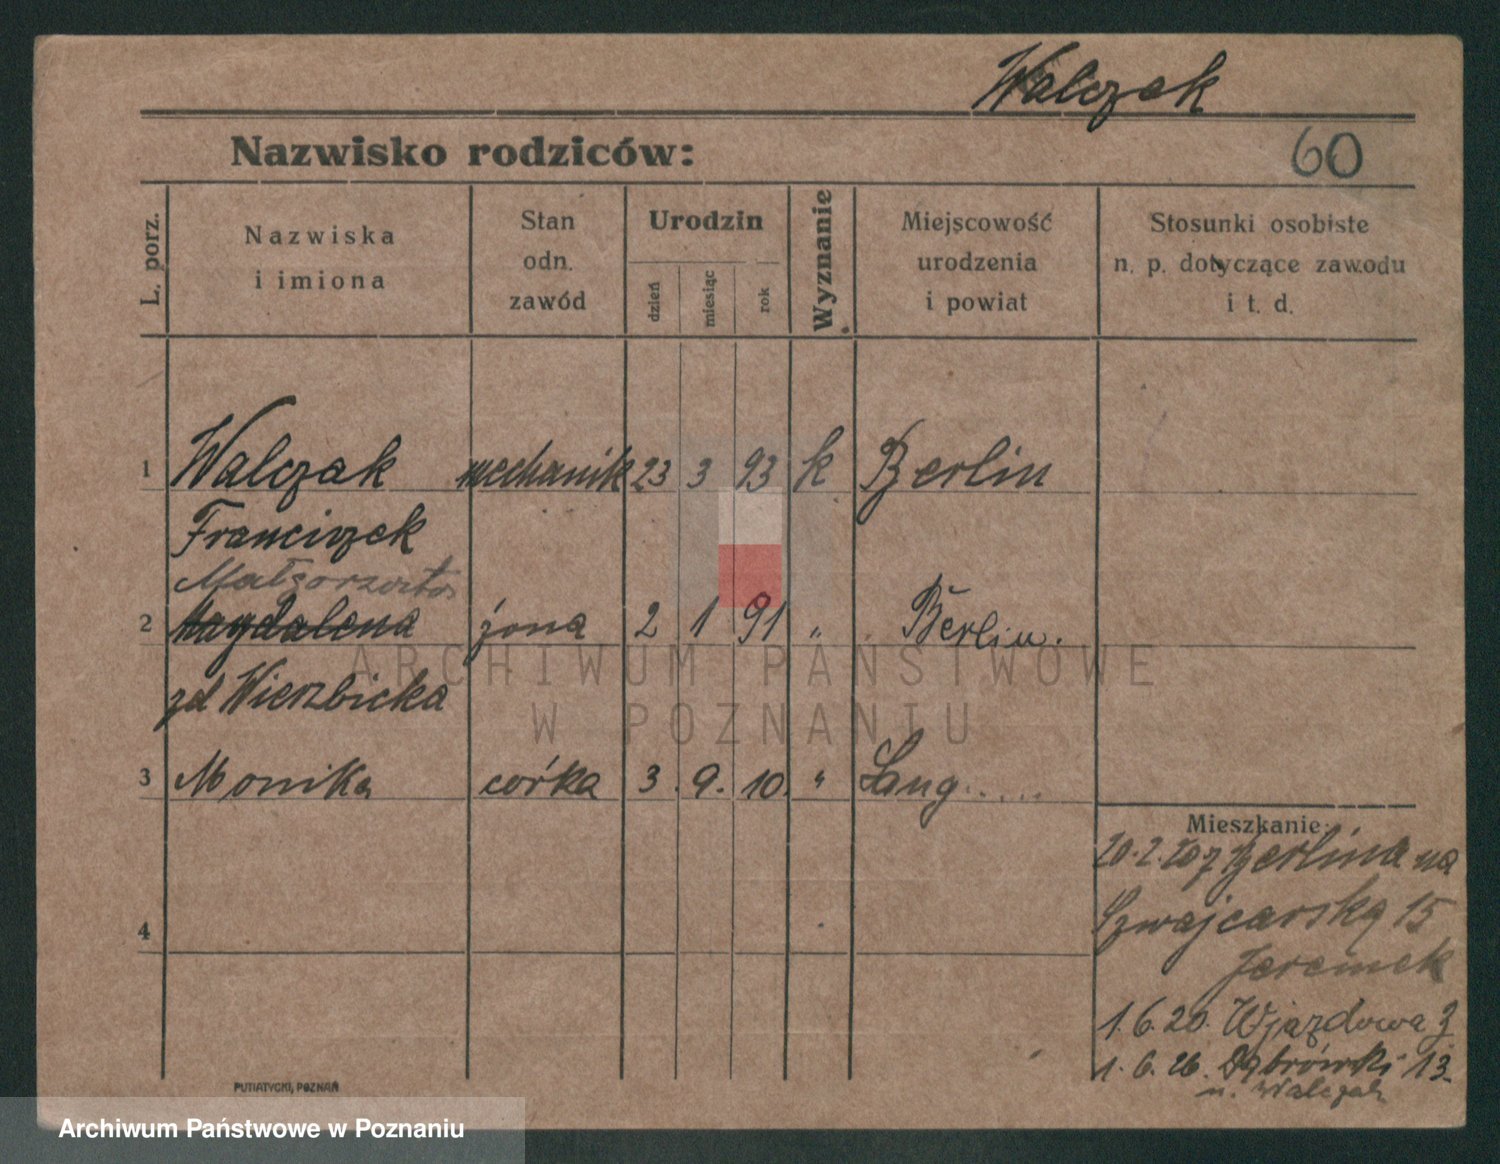 Walczak
Nazwisko rodziców:
60
L. porz.
Nazwiska
i imiona
Stan
odn.
zawód
Urodzin
dzień
miesiąc
rok
Wyznanie
Miejscowość
urodzenia
i powiat
Stosunki osobiste
n. p. dotyczące zawodu
i t. d.
1 Walczak mechanik 23 3 93 k Berlin
Franciszek
Małgorzata
2 Magdalena żona 2 1 91 " Berlin.
zd Wierzbicka
3 Monika córka 3. 9. 10. " Lang.....
4
Mieszkanie:
20.2.20 z Berlina na
Szwajcarską 15
Jeremek
1.6.20. Wjazdowa 3
1.6.26. Dąbrówki 13.
u. Walczak
PUTIATYCKI, POZNAŃ
ARCHIWUM PAŃSTWOWE
W POZNANIU
Archiwum Państwowe w Poznaniu